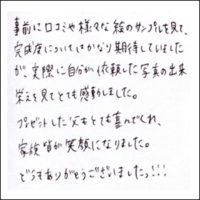 事前に口コミや様々な絵のサンプルを見て、
完成度についてはかなり期待していました
が、実際に自分が依頼した写真の出来
栄えを見てとても感動しました。
プレゼントした父もとても喜んでくれ、
家族皆が笑顔になりました。
どうもありがとうございましたっ!!!